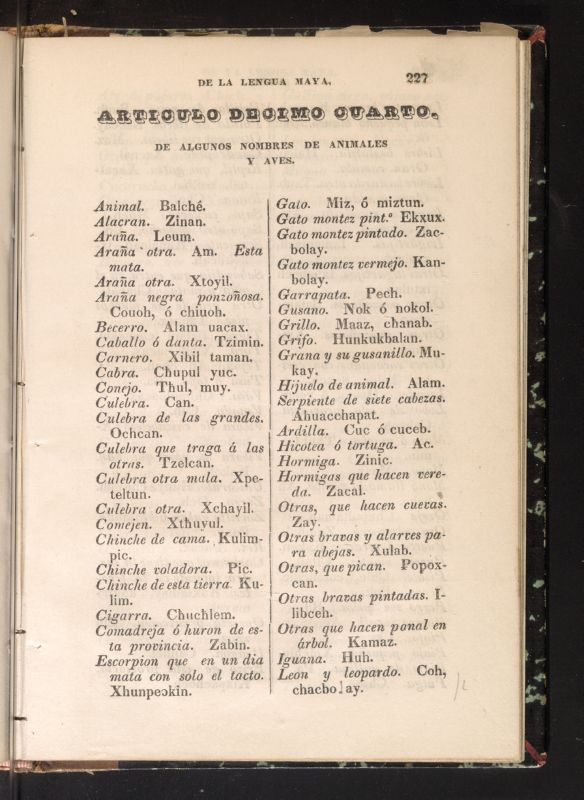 DE LA LENGUA MAYA.
227
ARTICULO DECIMO CUARTO.
DE ALGUNOS NOMBRES DE ANIMALES
Y AVES.
Animal. Balché.
Alacran. Zinan.
Araña. Leum.
Araña otra. Am. Esta
mata.
Araña otra. Xtoyil.
Araña negra ponzoñosa.
Couoh, ó chiuoh.
Becerro. Alam uacax.
Caballo ó danta. Tzimin.
Carnero. Xibil taman.
Cabra. Chupul yuc.
Conejo. Thul, muy.
Culebra. Can.
Culebra de las grandes.
Ochcan.
Culebra que traga á las
otras. Tzelcan.
Culebra otra mala. Xpe-
teltun.
Culebra otra. Xchayil.
Comejen. Xthuyul.
Chinche de cama. Kulim-
pic.
Chinche voladora. Pic.
Chinche de esta tierra. Ku-
lim.
Cigarra. Chuchlem.
Comadreja ó huron de es-
ta provincia. Zabin.
Escorpion que en un dia
mata con solo el tacto.
Xhunpeɔkin.
Gato. Miz, ó miztun.
Gato montez pint.º Ekxux.
Gato montez pintado. Zac-
bolay.
Gato montez vermejo. Kan-
bolay.
Garrapata. Pech.
Gusano. Nok ó nokol.
Grillo. Maaz, chanab.
Grifo. Hunkukbalan.
Grana y su gusanillo. Mu-
kay.
Hijuelo de animal. Alam.
Serpiente de siete cabezas.
Ahuacchapat.
Ardilla. Cuc ó cuceb.
Hicotea ó tortuga. Ac.
Hormiga. Zinic.
Hormigas que hacen vere-
da. Zacal.
Otras, que hacen cuevas.
Zay.
Otras bravas y alarves pa-
ra abejas. Xulab.
Otras, que pican. Popox-
can.
Otras bravas pintadas. I-
libceh.
Otras que hacen panal en
árbol. Kamaz.
Iguana. Huh.
Leon y leopardo. Coh,
chacbolay.